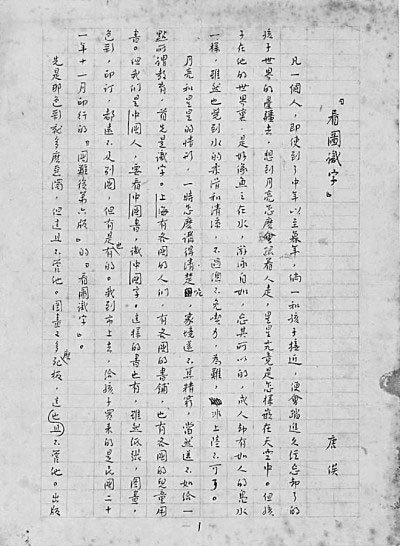 『看圖識字』
唐俟
凡一個人，即使到了中年以至暮年，倘一和孩子接近，便會踏進久經忘却了的
孩子世界的邊疆去，想到月亮怎麽會跟着人走，星星究竟是怎樣嵌在天空中。但孩
子在他的世界裏，是好像魚之在水，游泳自如，忘其所以的，成人却有如人的凫水
一樣，雖然也覺到水的柔滑和清涼，不過總不免喫力，為難，非上陸不可了。
月亮和星星的情形，一時怎麽講得清楚呢，家境還不算精窮，當然還不如給一
點所謂教育，首先是識字。上海有各國的人們，有各國的書鋪，也有各國的兒童用
書。但我們是中國人，要看中國書，識中國字。這樣的書也有，雖然紙張，圖畫，
色彩，印訂，都遠不及別國，但有是也有的。我到市上去，給孩子買來的是民國二十
一年十一月印行的『國難後第六版』的『看圖識字』。
先是那色彩就多麽惡濁，但這且不管他。圖畫又多麽死板，這也且不管他。出版
1